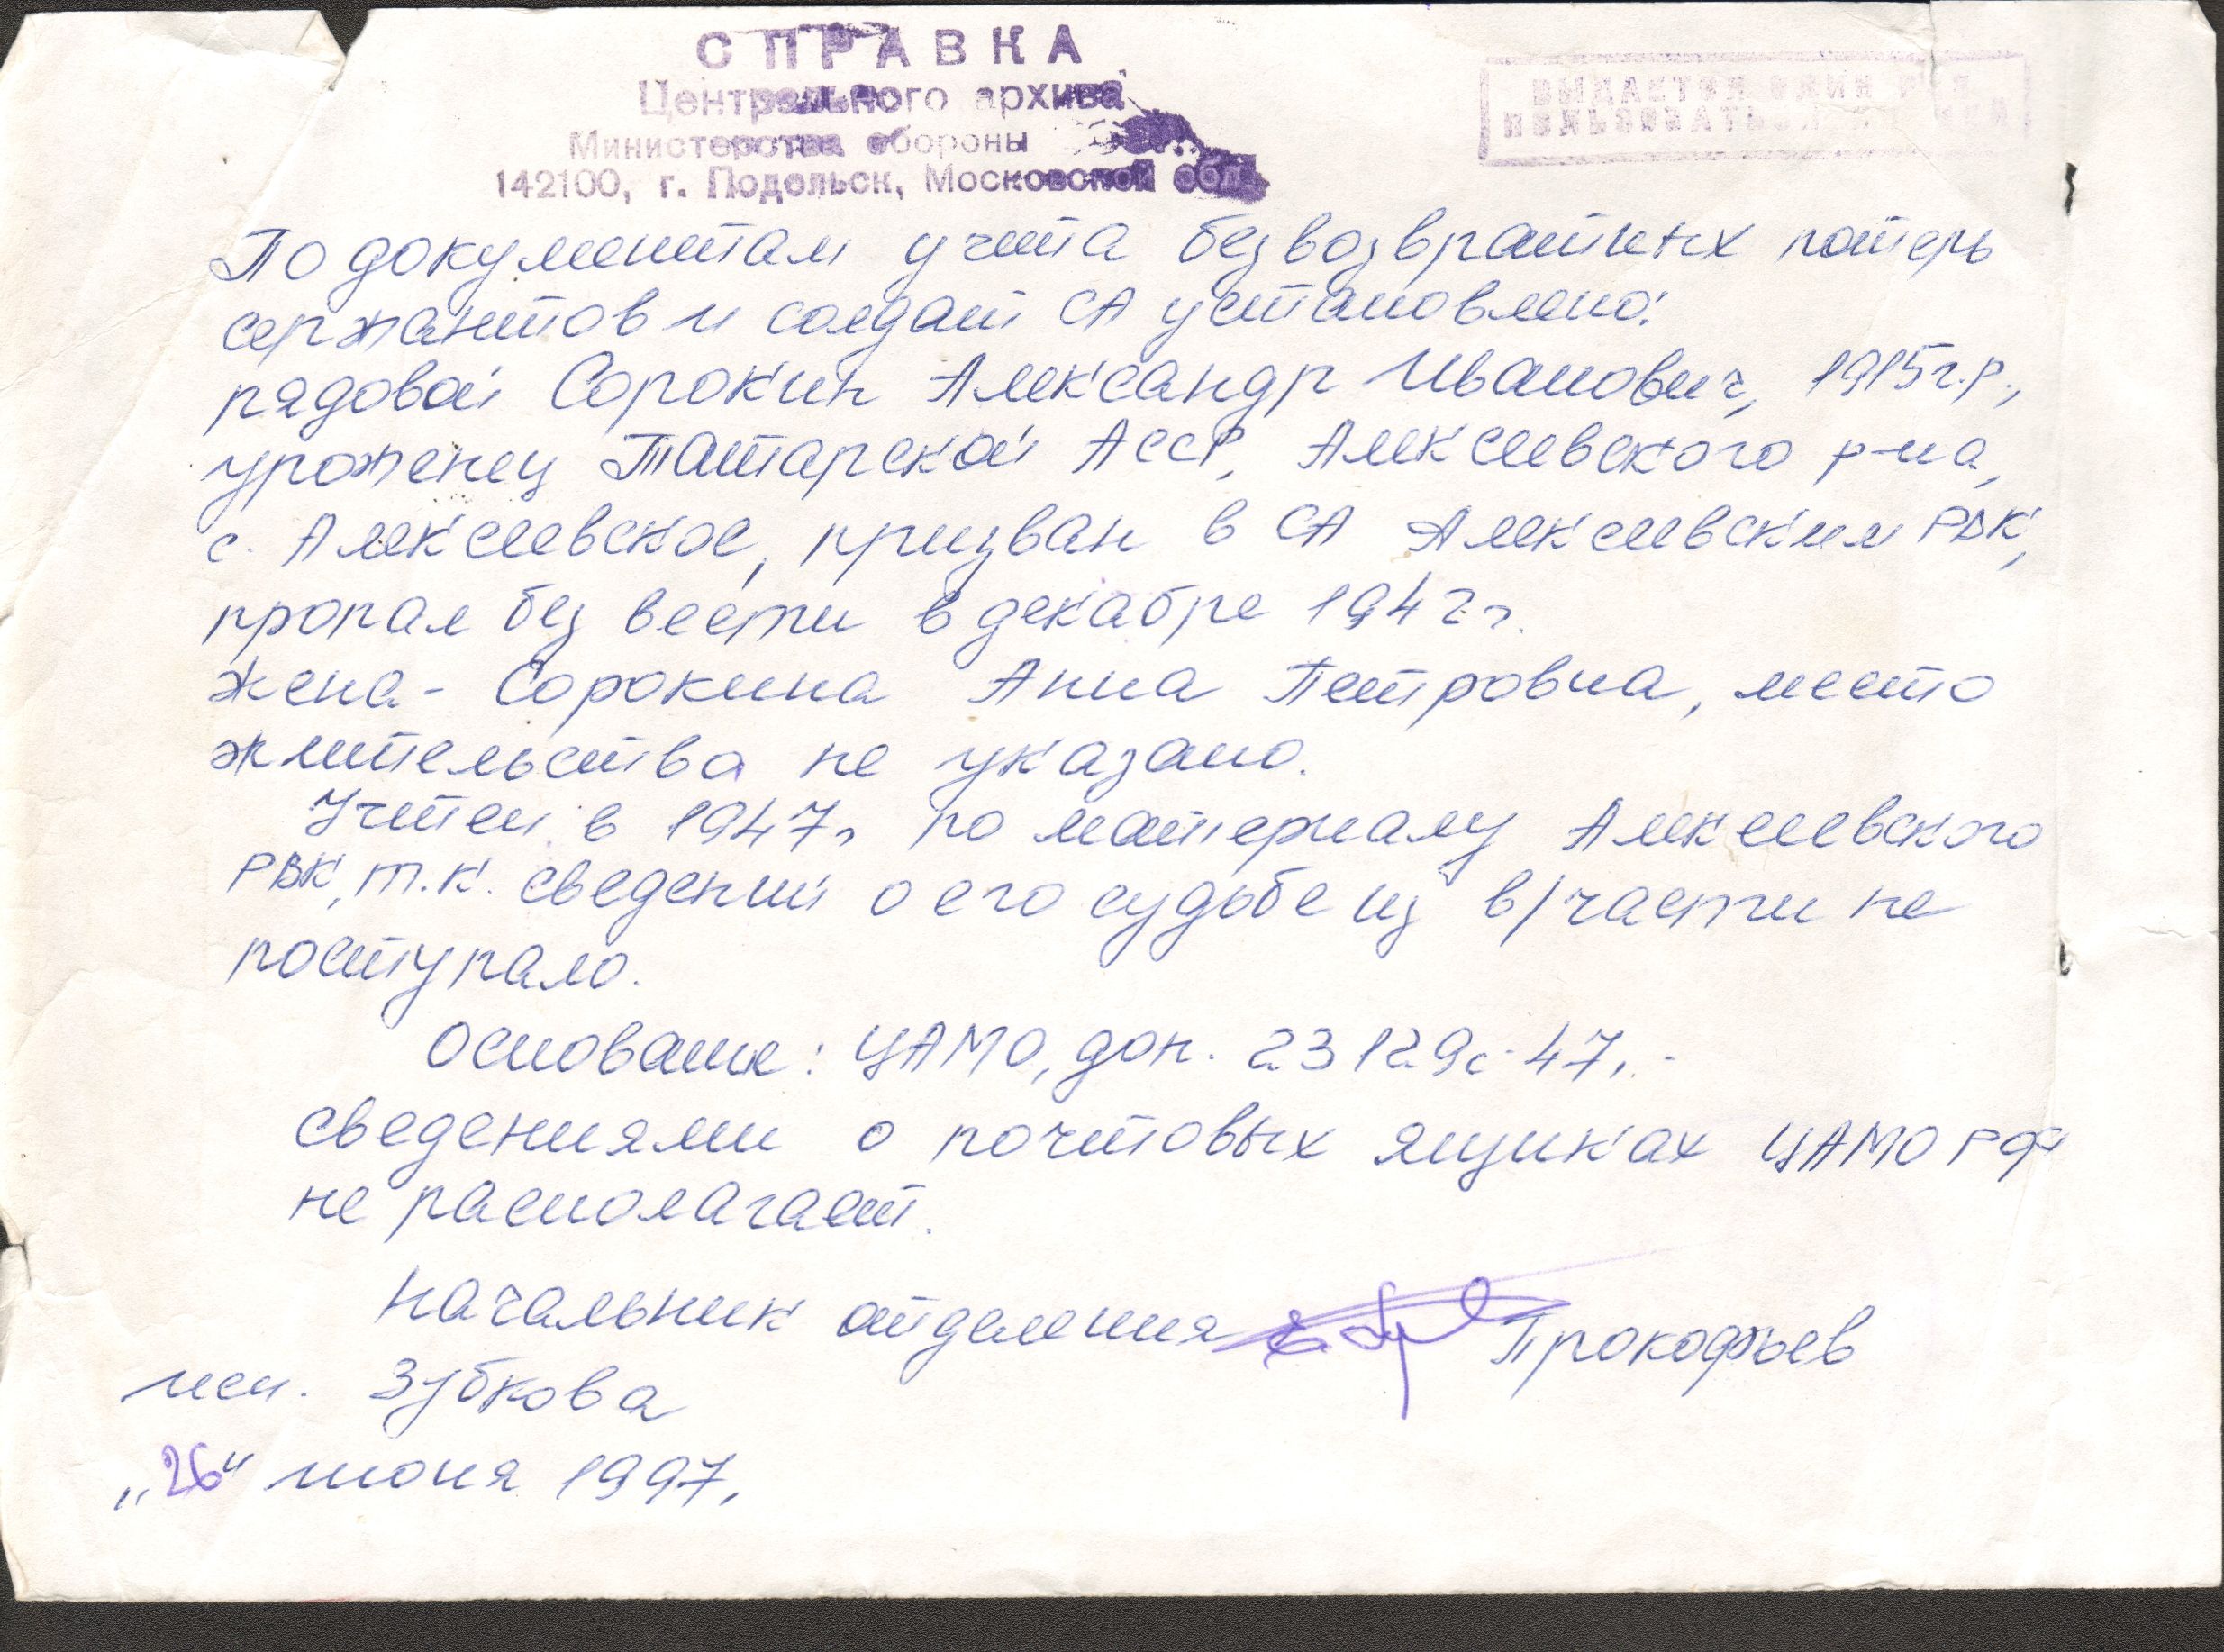 СПРАВКА
Центрального архива
Министерства обороны
142100, г. Подольск, Московской обл.
ВЫДАЕТСЯ ОДИН РАЗ
По документам учета безвозвратных потерь
сержантов и солдат СА установлено:
рядовой Сорокин Александр Иванович, 1915г.р.,
уроженец Татарской АССР, Алексеевского р-на,
с. Алексеевское, призван в СА Алексеевским РВК,
пропал без вести в декабре 1942г.
жена - Сорокина Анна Петровна, место
жительства не указано.
Учтен в 1947г по материалу Алексеевского
РВК, т.к. сведений о его судьбе из в/части не
поступало.
Основание: ЦАМО, дон. 23129с-47г.-
сведениями о почтовых ящиках ЦАМО РФ
не располагает.
Начальник отделения Прокофьев
исп. Зубкова
„26" июня 1997г